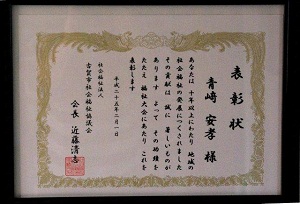 表彰状
青崎安孝様
あなたは 十年以上にわたり 地域の
社会福祉の発展につくされました
その貢献は 誠に 著しいものが
あります よって その功績を
たたえ 福祉大会にあたり これを
表彰します
平成二十五年二月一日
社会福祉法人
古賀市社会福祉協議会
会長 近藤清志